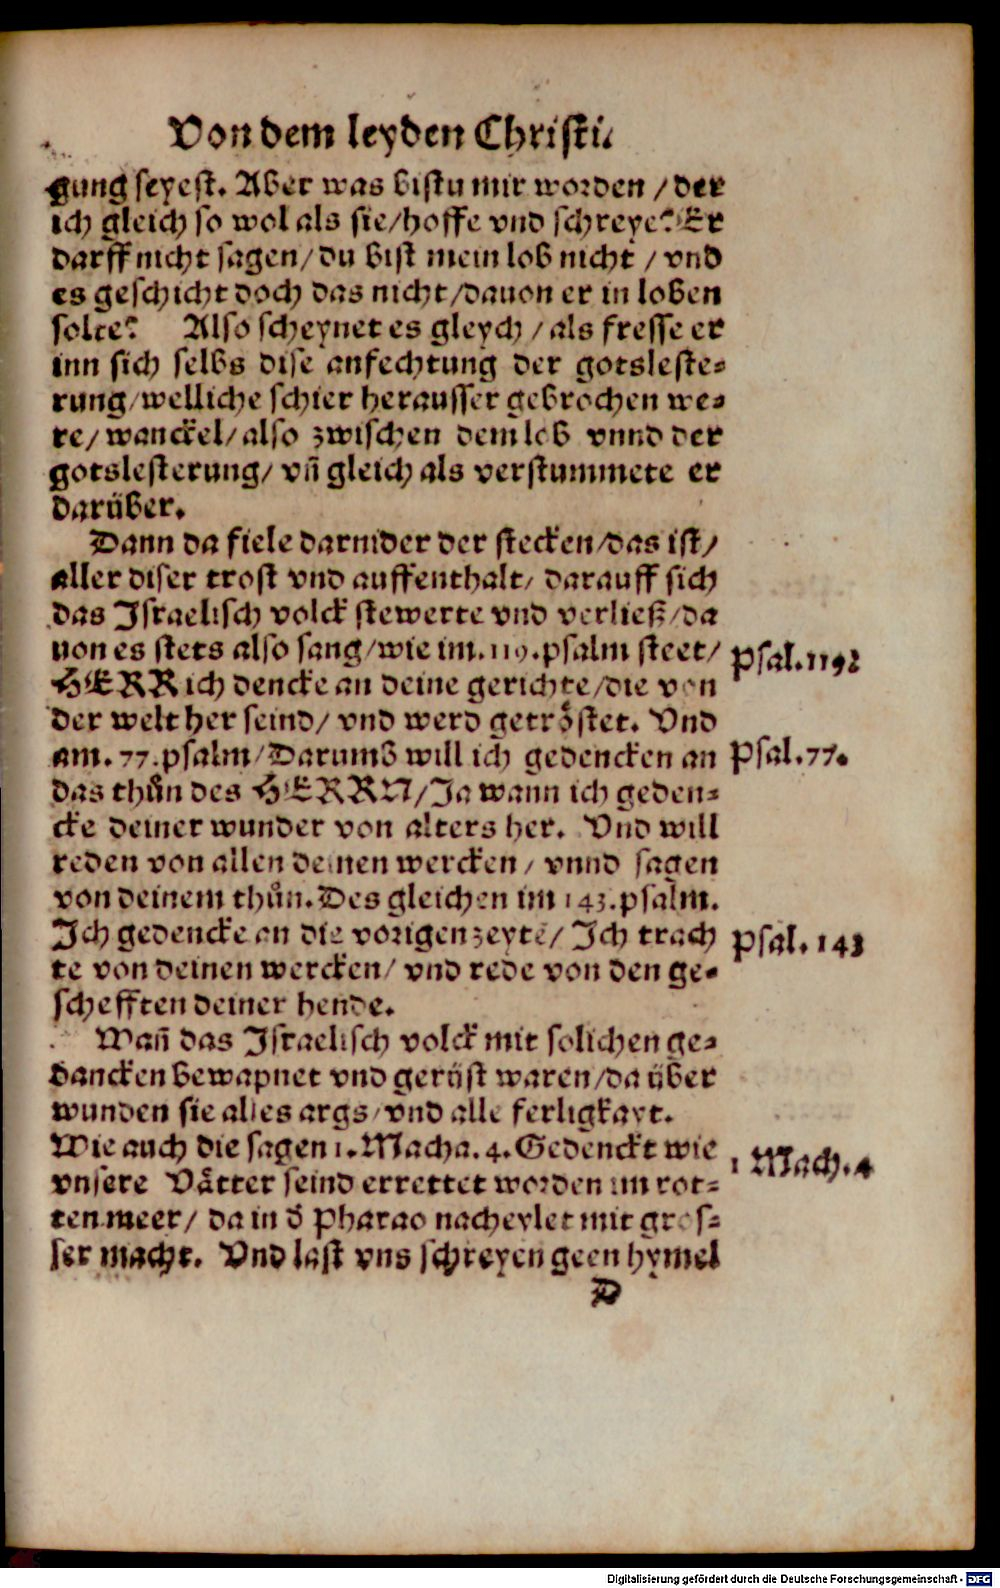 Von dem leyden Christi.
gung seyest. Aber was bistu mir worden / der
ich gleich so wol als sie/hoffe vnd schreye? Er
darff nicht sagen/ du bist mein lob nicht / vnd
es geschicht doch das nicht/dauon er in loben
solte? Also scheynet es gleych / als fresse er
inn sich selbs dise anfechtung der gotsleste-
rung/welliche schier herausser gebrochen we-
re/ wanckel/also zwischen dem lob vnnd der
gotslesterung/ vn̄ gleich als verstummete er
darüber.
Dann da fiele darnider der stecken/das ist/
aller diser trost vnd auffenthalt/ darauff sich
das Israelisch volck stewerte vnd verließ/da
uon es stets also sang/wie im.119.psalm steet/
HERR ich dencke an deine gerichte/die von
der welt her seind/ vnd werd getröstet. Vnd
am. 77.psalm/Darumb will ich gedencken an
das thůn des HERRN/Ja wann ich geden-
cke deiner wunder von alters her. Vnd will
reden von allen deinen wercken/ vnnd sagen
von deinem thůn. Des gleichen im 143.psalm.
Ich gedencke an die vorigen zeyte/ Ich trach
te von deinen wercken/ vnd rede von den ge-
schefften deiner hende.
Wan̄ das Israelisch volck mit solichen ge-
dancken bewapnet vnd gerüst waren/da über
wunden sie alles args/vnd alle ferligkayt.
Wie auch die sagen 1. Macha. 4. Gedenckt wie
vnsere Vätter seind errettet worden im rot-
ten meer/ da in d̄ Pharao nacheylet mit gros-
ser macht. Vnd last vns schreyen geen hymel
D
Psal.119
Psal.77.
Psal. 143
1 Mach. 4
Digitalisierung gefördert durch die Deutsche Forschungsgemeinschaft - DFG